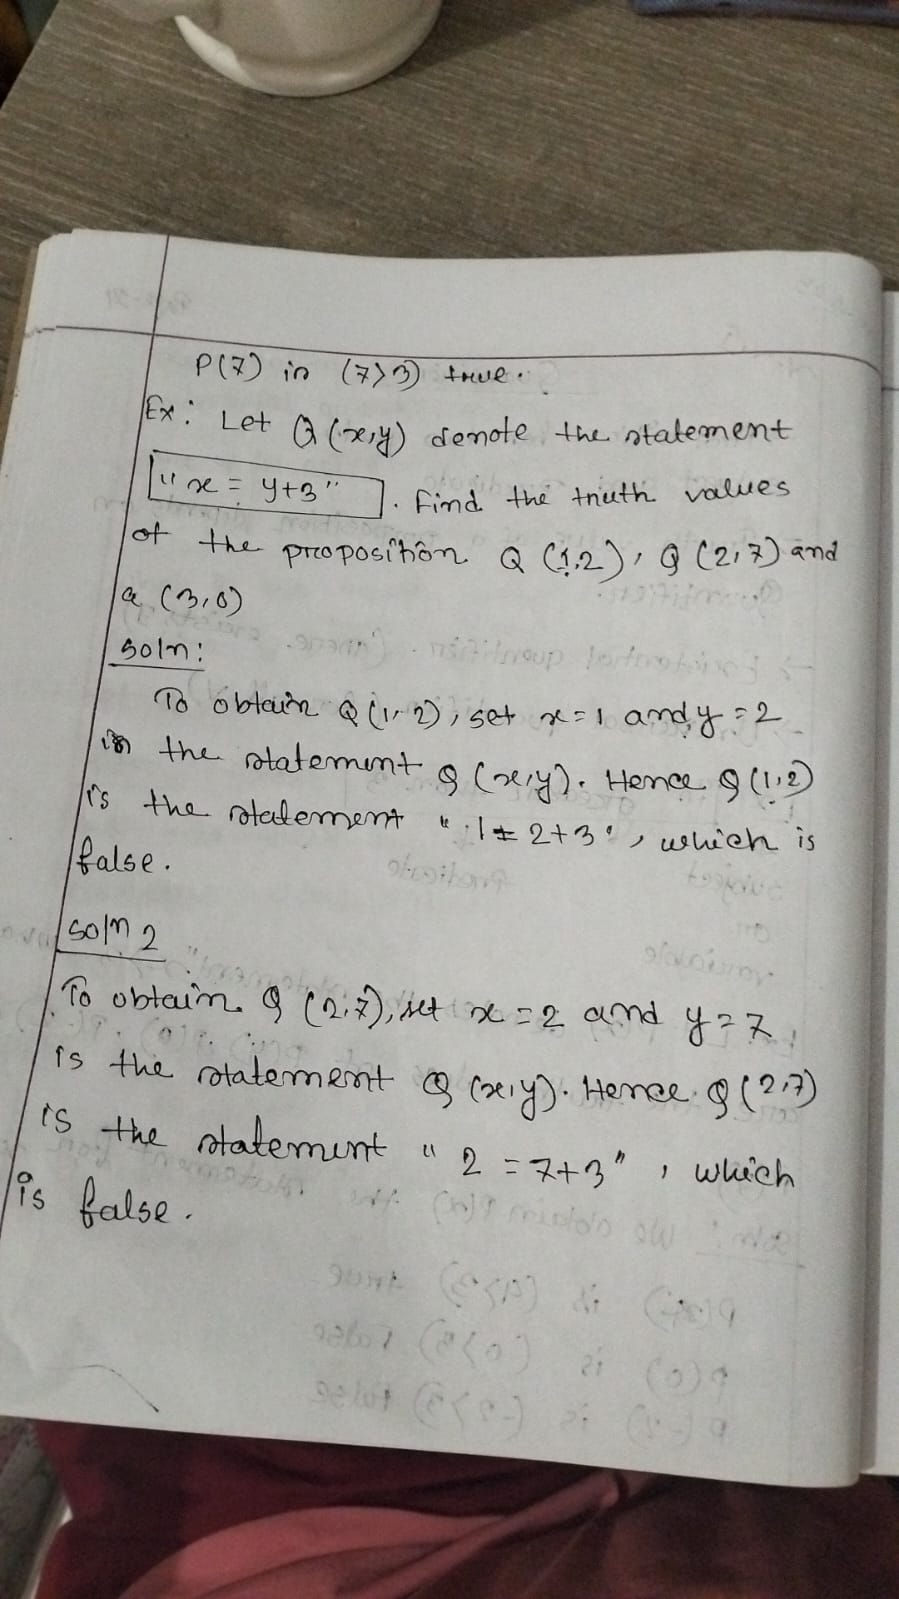 P(7) is (7>3) true.
Ex: Let Q (x,y) denote the statement
"x = y+3". Find the truth values
of the proposition Q (1,2), Q (2,7) and
Q (3,0)
Soln:
To obtain Q (1,2), set x=1 and y=2
in the statement Q (x,y). Hence Q (1,2)
is the statement "1 = 2+3", which is
false.
Soln 2
To obtain Q (2,7), set x=2 and y=7
is the statement Q (x,y). Hence Q (2,7)
is the statement "2 = 7+3", which
is false.